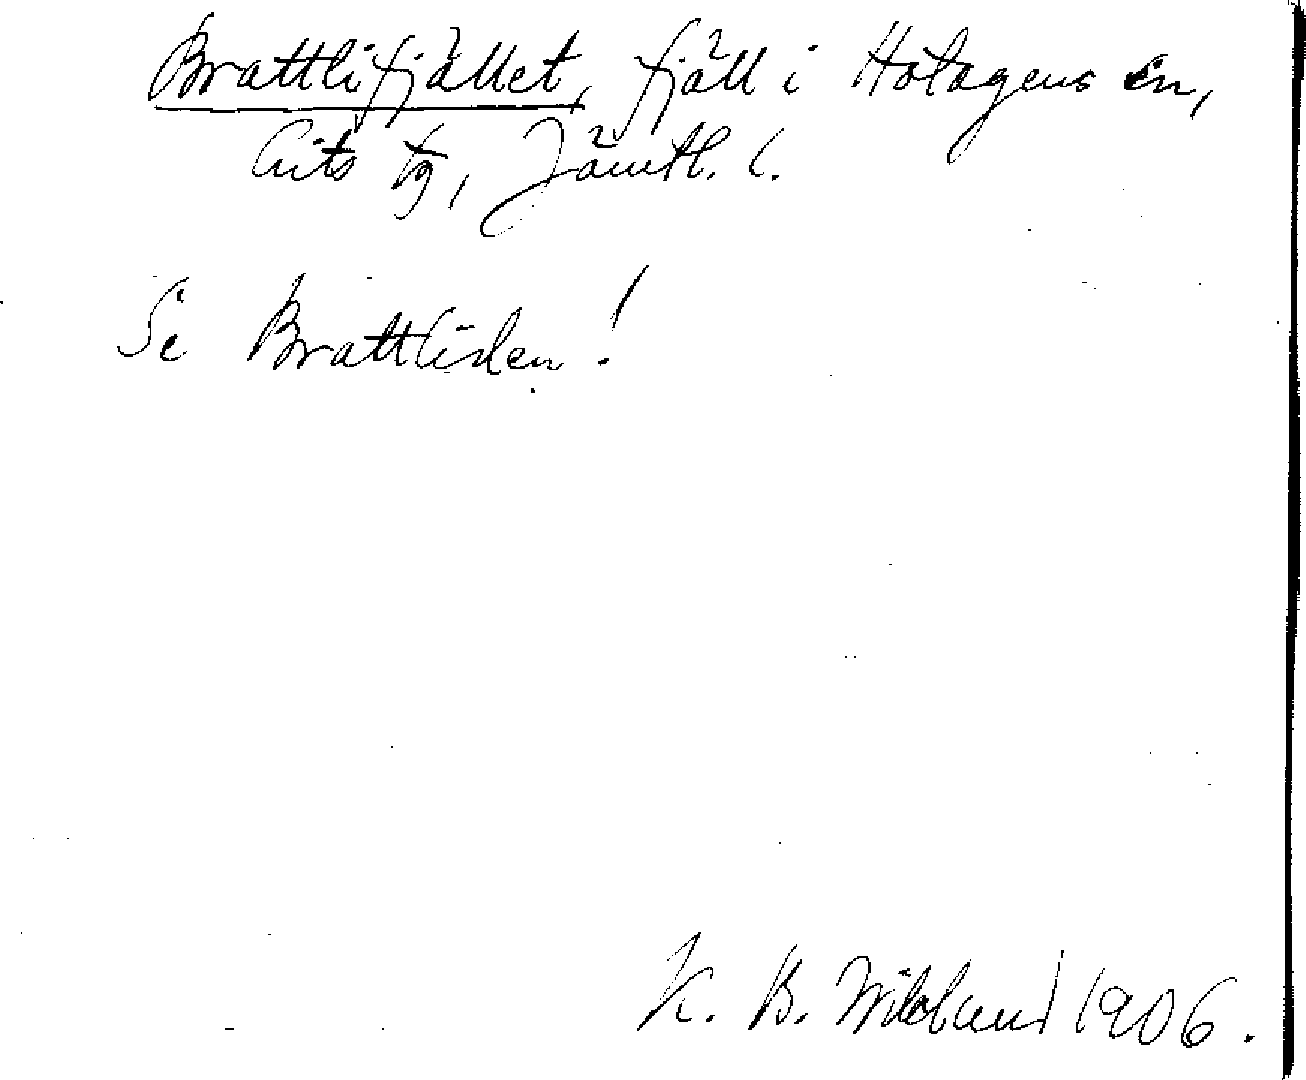 Brattlifjället, fjäll i Hotagens sn,
Lits tg, Jämtl. l.
Se Brattliden!
K. B. Wiklund 1906.